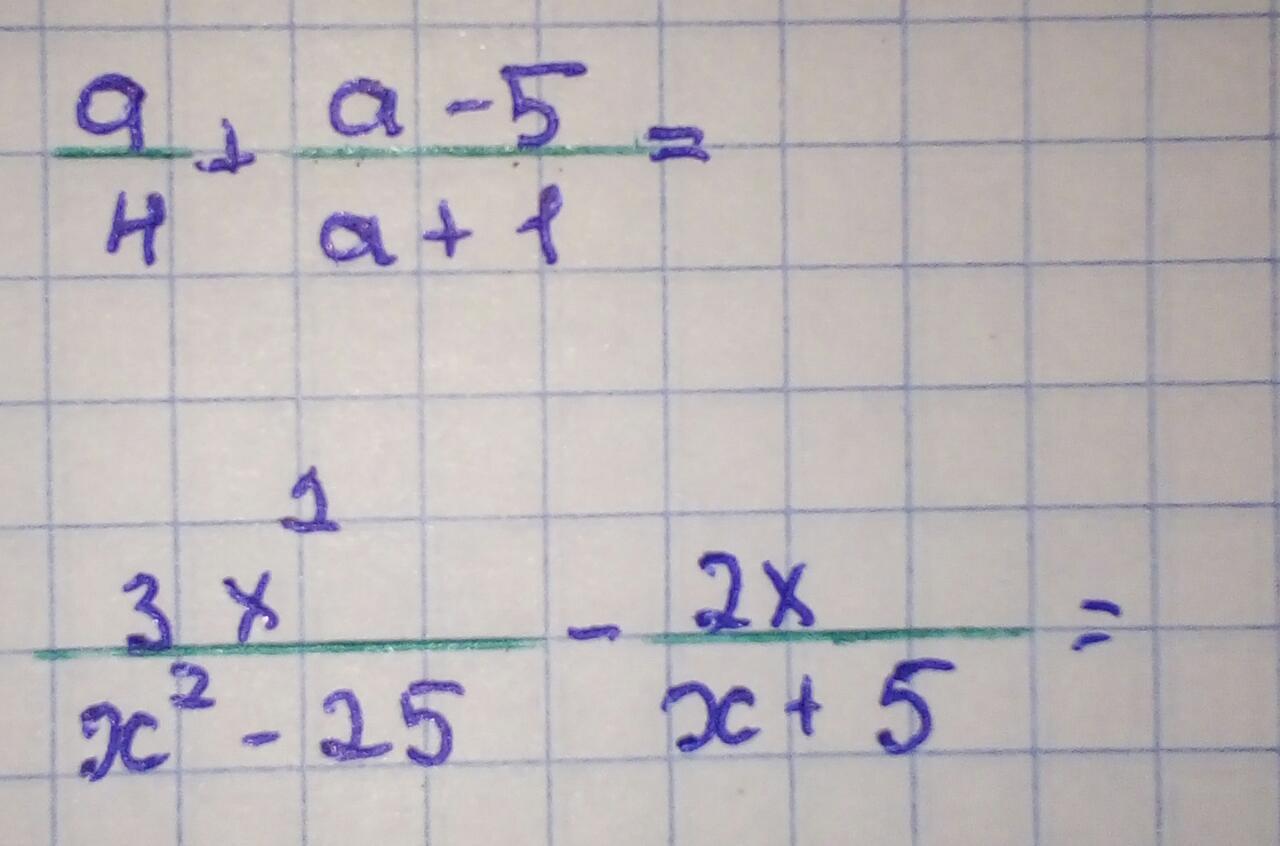 a/4 + (a - 5)/(a + 1) =
3x²/(x² - 25) - 2x/(x + 5) =